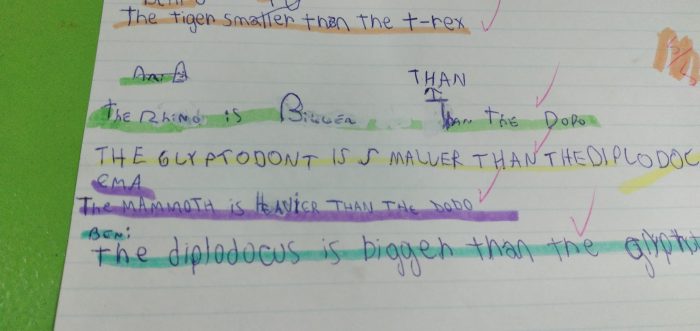 The tiger smaller than the t-rex
THAN
The Rhino is Bigger Than The Dodo
THE GLYPTODONT IS SMALLER THAN THE DIPLODOC
EMA
The MAMMOTH is HEAVIER THAN THE DODO
BEN:
The diplodocus is bigger than the glyptot